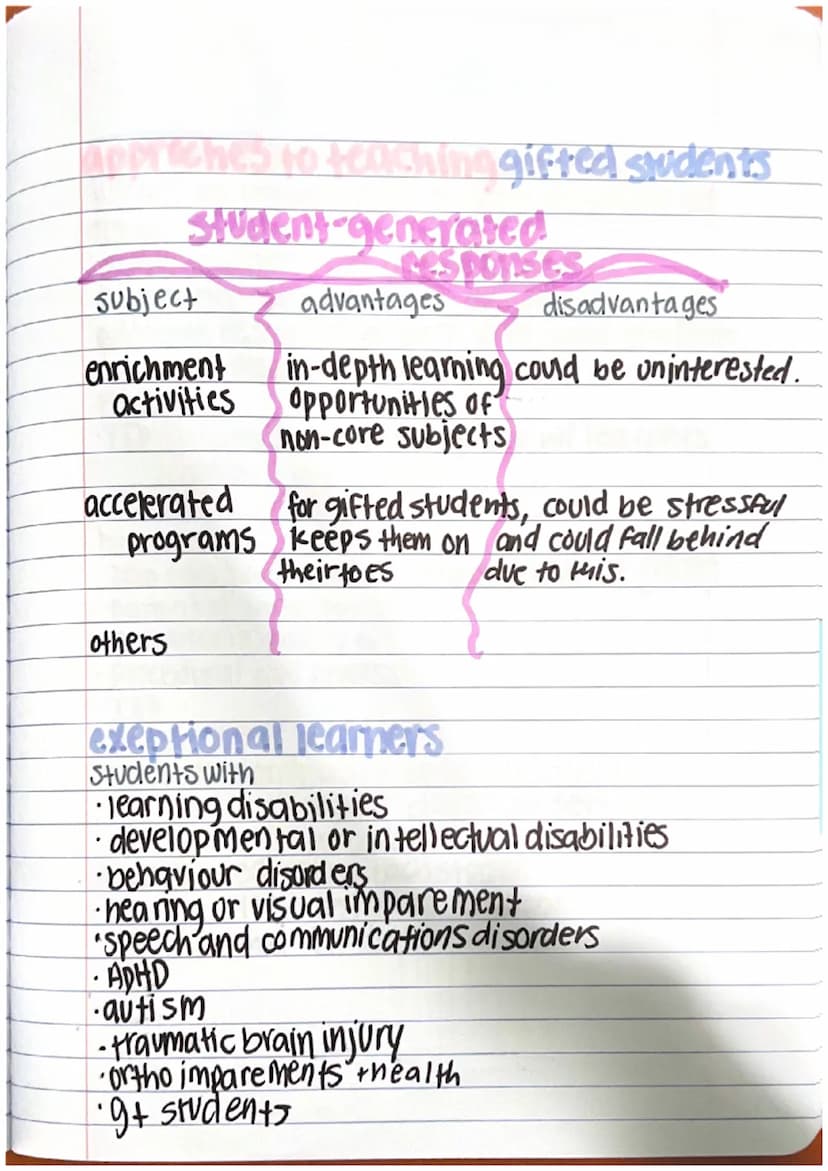 approches to teaching gifted students
student-generated
responses
subject advantages disadvantages
enrichment in-depth learning could be uninterested.
activities opportunities of
non-core subjects
accelerated for gifted students, could be stressful
programs keeps them on and could fall behind
their toes due to this.
others
exeptional learners
students with
· learning disabilities
· developmental or intellectual disabilities
· behaviour disorders
· hearing or visual imparement
· speech and communications disorders
· ADHD
· autism
· traumatic brain injury
· ortho imparements + health
· gt students